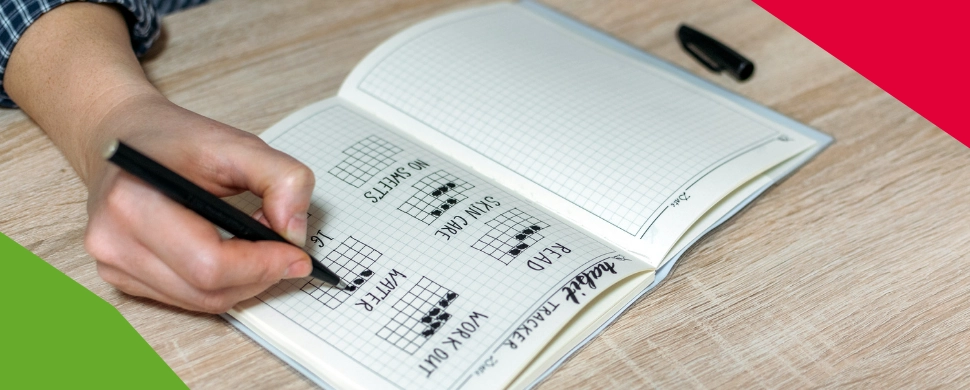 habit TRACKER
READ
WORK OUT
SKIN CARE
WATER
NO SWEETS
16